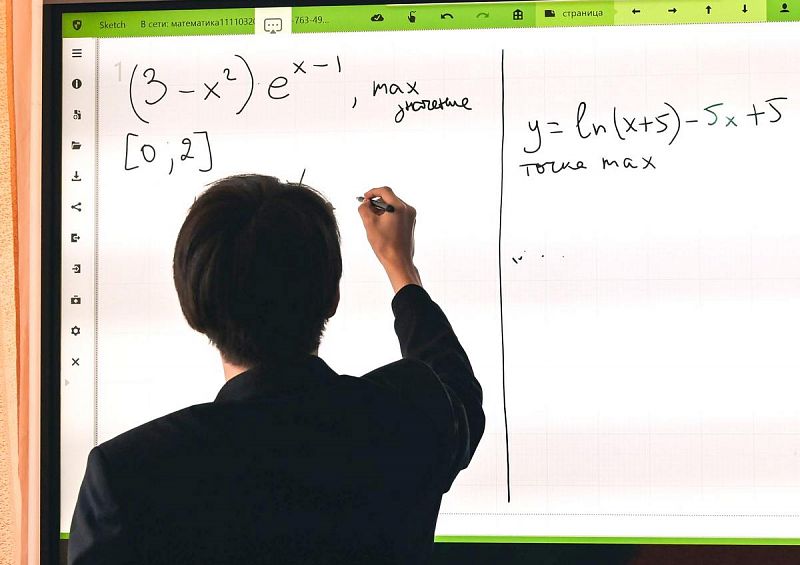 Sketch
763-49...
страница
1
(3 - x²) · e^(x-1), max
значение
[0 ; 2]
y = ln(x+5) - 5x + 5
точка max